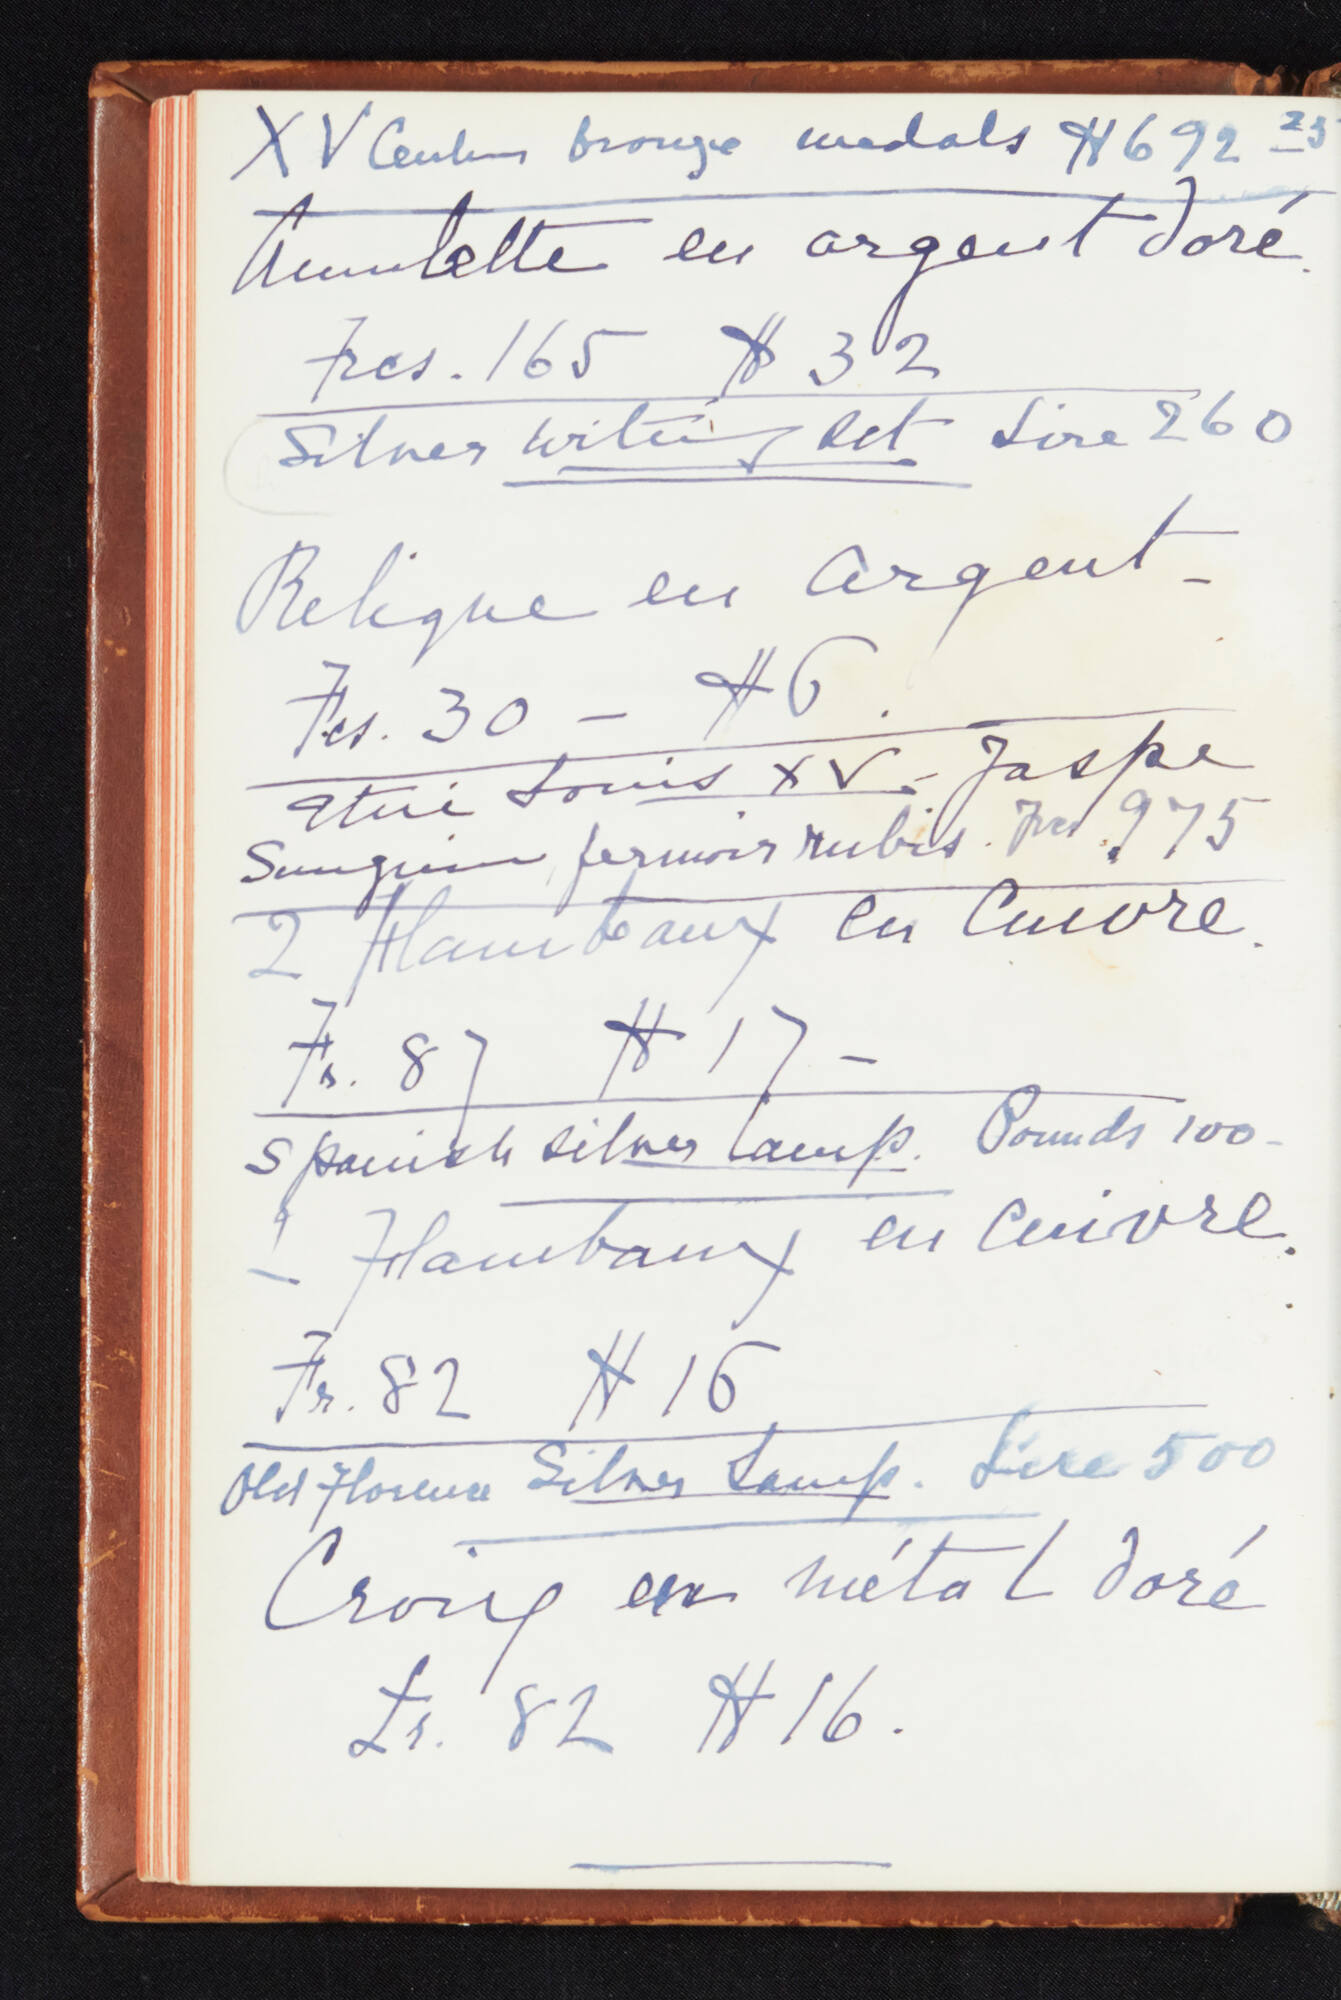 XV Century bronze medals $692 25
Amulette en argent doré.
Frcs. 165 $32
Silver writing set Lire 260
Relique en argent -
Fcs. 30 - $6.
etui Louis XV - Jaspe
Sanguin, fermoir rubis. Frcs. 975
2 Flambeaux en Cuivre.
Fr. 87 $17 -
Spanish silver lamp. Pounds 100 -
1 Flambaux en Cuivre.
Fr. 82 $16
Old Florence Silver Lamp. Lire 500
Croix en métal doré
Lr. 82 $16.